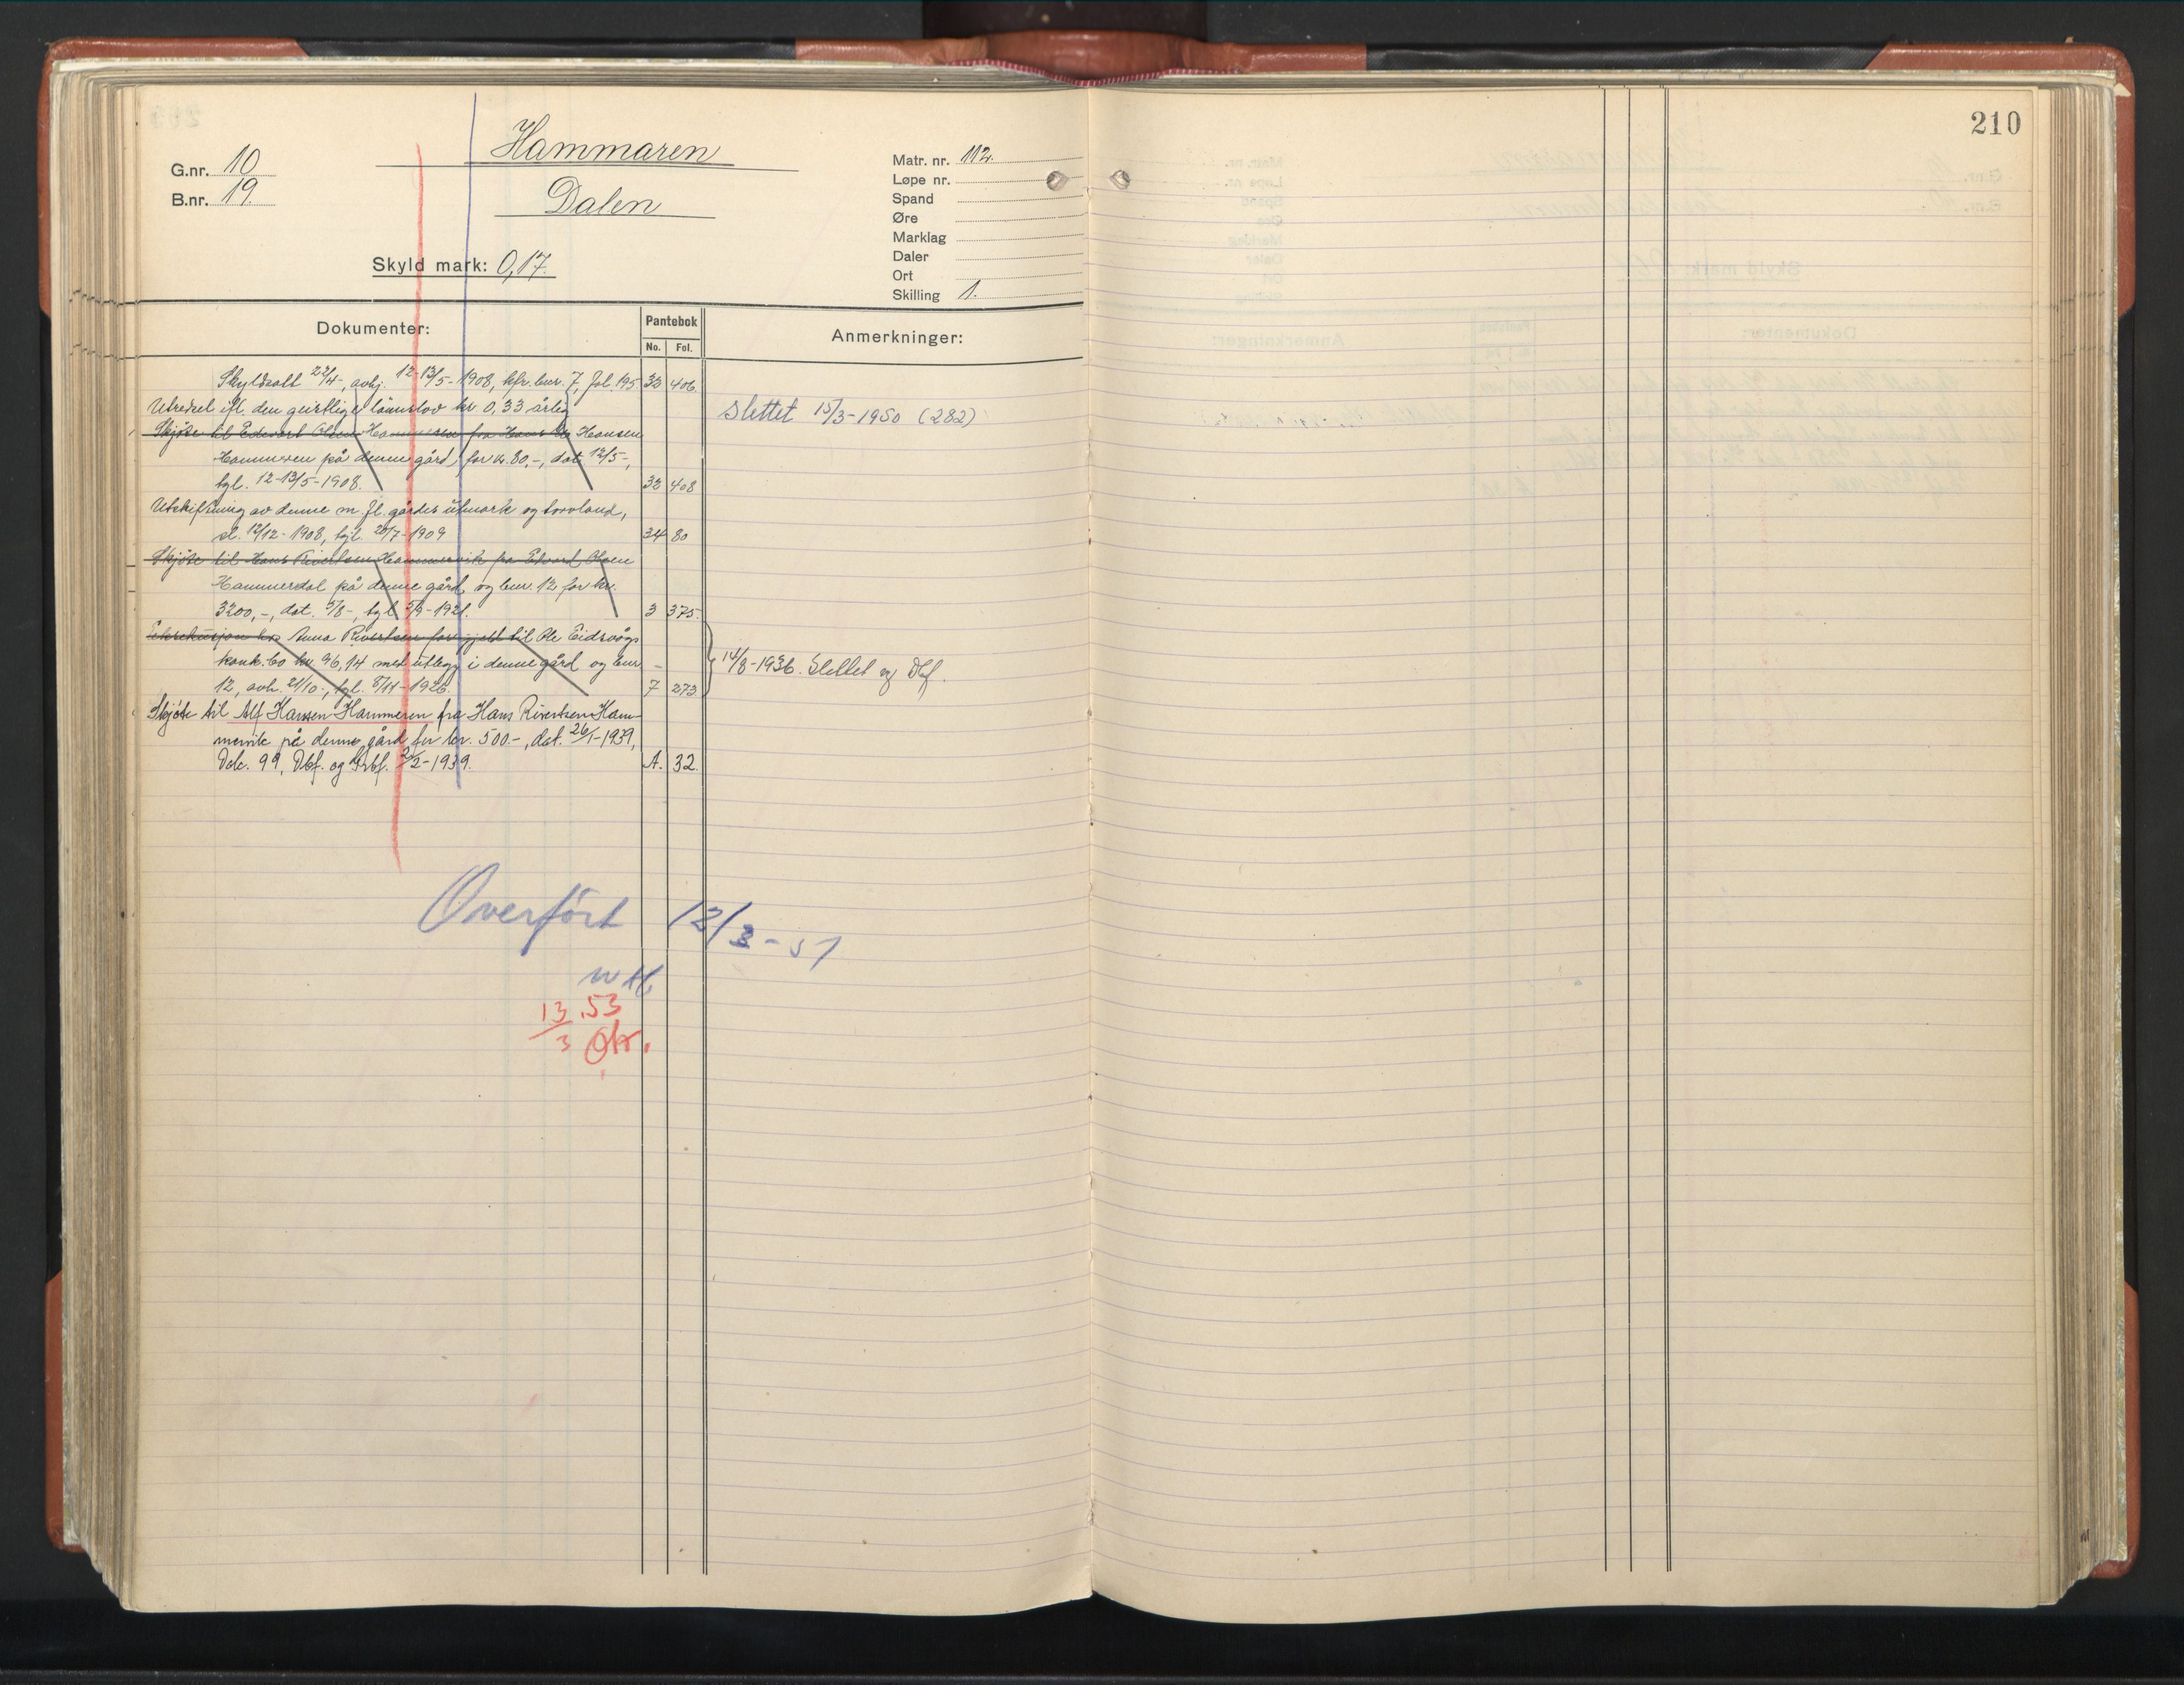 210
G.nr. 10
B.nr. 19.
Hammaren
Dalen
Skyld mark: 0,17.
Matr. nr. 112.
Løpe nr.
Spand
Øre
Marklag
Daler
Ort
Skilling 1.
Dokumenter:
Pantebok
No. Fol.
Anmerkninger:
Skyldsatt 22/4-, avhj. 12-13/5-1908, kfr. bnr. 7, fol. 195 33 406
Utredsel ifl. den geistlige lønnslov kr 0,33 årlig
slettet 15/3-1950 (282)
Skjøte til Edvart Olsen Hammeren fra Hans Hansen
Hammeren på denne gård for kr. 80,-, dat. 12/5-,
tgl. 12-13/5-1908. 33 408
Utskiftning av denne m. fl. gårdes utmark og torvland,
sl. 12/12-1908, tgl. 20/7-1909 34 80
Skjøte til Hans Rivertsen Hammervik fra Edvart Olsen
Hammerdal på denne gård og bnr. 12 for kr.
3200,-, dat. 5/8-, tgl. 5/8-1921. 3 375
Eksekusjon hos Anna Rivertsen for gjeld til Ole Eidsvågs
konk.bo kr 96,14 med utlegg i denne gård og bnr
12, avh. 21/10-, tgl. 8/11-1926. 7 273
14/8-1936. Slettet og Dbf.
Skjøte til Alf Hansen Hammeren fra Hans Rivertsen Ham-
mervik på denne gård for kr. 500.-, dat. 26/1-1939,
Dok. 99, Dbf. og Grbf. 2/2-1939. A. 32.
Overført 12/3-51
13/3 .53